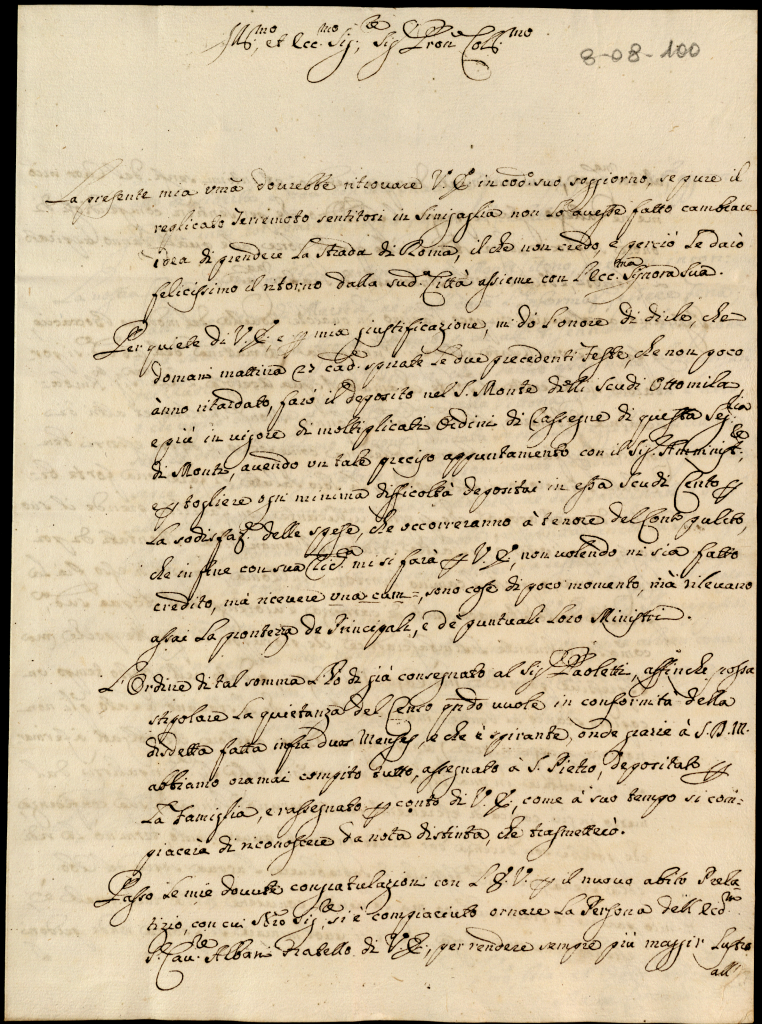 Ill.mo, et Ecc.mo Sig.re, Sig.re Pron. Coll.mo
8-08-100
La presente mia dovrebbe ritrovare V.E. in cod.o suo soggiorno, se pure il
replicato Terremoto sentitosi in Sinigaglia non Lo avesse fatto cambiare
idea di prendere La strada di Roma, il che non credo, e perciò Le darò
felicissimo il ritorno dalla sud.a Città assieme con L'Ecc.ma Signora Sua.
Per quiete di V.E., e p mia giustificazione, mi dò L'onore di dirle, che
domani mattina 23 cad.e spirate Le due precedenti Feste, che non poco
ànno ritardato, farò il deposito nel S. Monte delli Scudi Ottomila,
e più in vigore di moltiplicati Ordini di Cassegne di questa
di Monte, avendo un tale preciso appuntamento con il Sig.
e p togliere ogni minima difficoltà depositai in essa Scudi Cento p
La sodisfaz.e delle spese, che occorreranno à tenore del Conto pulito,
che in fine con sua mi si farà p V.E., non volendo mi sia fatto
credito, mà ricevere una cum =, sono cose di poco momento, mà rilevano
assai La prontezza de Principali, e de puntuali Loro Ministri.
L'Ordine di tal somma L'hò di già consegnato al Sig.re Paoletti, affinche possa
stipolare La quietanza del Censo qndo vuole in conformità della
disdetta fatta infra duos Menses, e che è spirante, onde grazie à S.D.M.
abbiamo oramai compito tutto, assegnato à S. Pietro, depositato p
La Famiglia, e rassegnato p conto di V.E., come à suo tempo si com=
piacerà di riconoscere da nota distinta, che trasmetterò.
Passo Le mie dovute congratulazioni con L'E.V. p il nuovo abito Prela=
tizio, con cui Nro Sig.re si è compiaciuto ornare La Persona dell'
S.r Cav.re Albani Fratello di V.E., per rendere sempre più maggior Lustro
all'